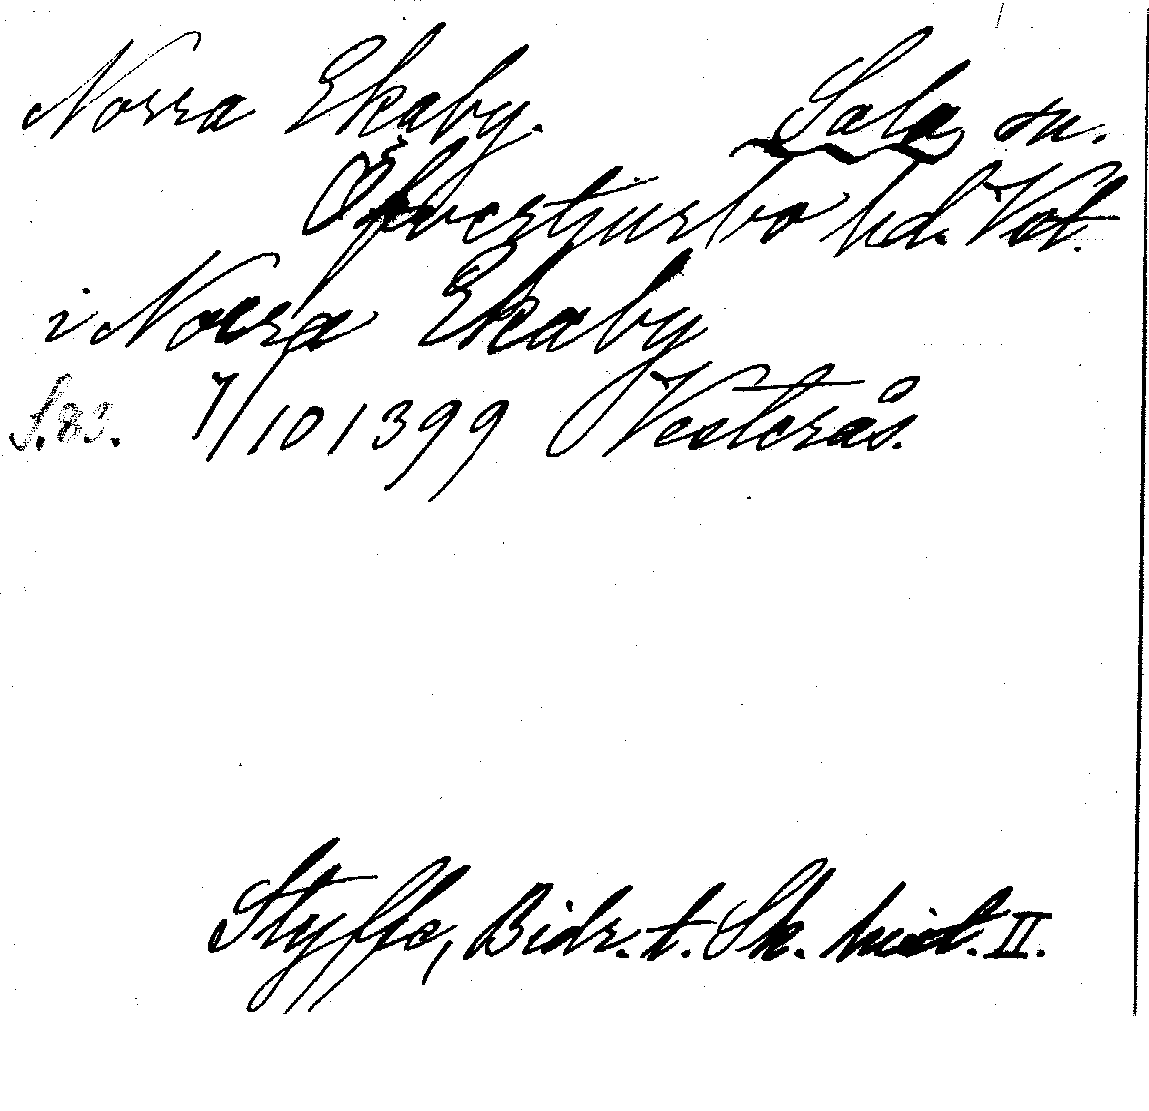 Norra Ekaby. Sala sn.
Öfvertjurbo hd. Vstl.
i Norra Ekaby
S. 83. 7/10 1399 Vesterås.
Styffe, Bidr. t. Sk. hist. II.